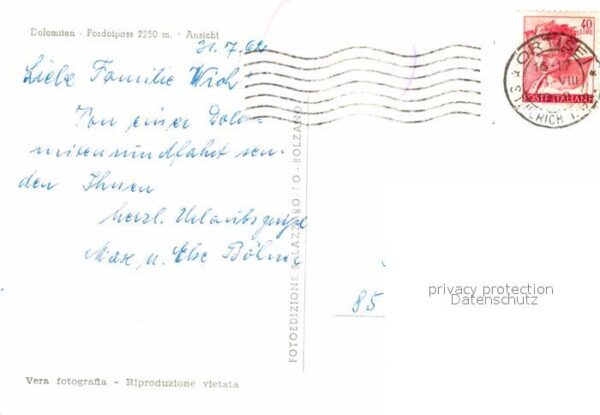 Dolomiten - Pordoipass 2250 m. - Ansicht
31.7.62
Liebe Familie
Von einer Dolo-
mitenrundfahrt sen-
den Ihnen
herzl. Urlaubsgrüße
Max u. Else Böhm
85
40
LIRE
POSTE ITALIANE
ORTISEI
16-17
VIII
ST. ULRICH
FOTOEDIZIONE - BOLZANO
privacy protection
Datenschutz
Vera fotografia - Riproduzione vietata